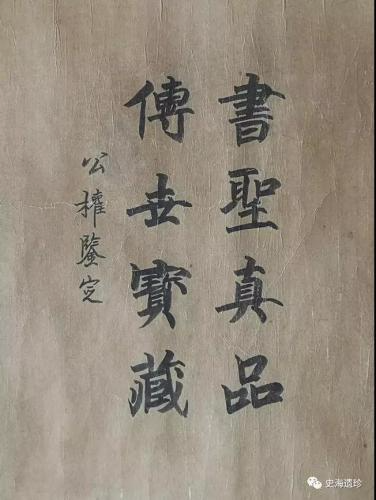 書聖真品
傳世寶藏
公權鑒定
史海遗珍